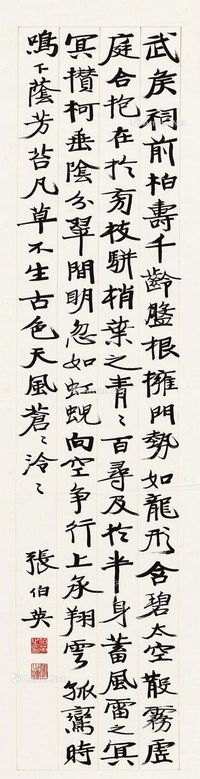 武矦祠前柏壽千齡盤根擁門勢如龍形含碧太空散霧虛
庭合抱在於旁枝駢梢葉之青〻百尋及於半身蓄風雷之冥
冥攢柯垂陰分翠間明忽如虹蜺向空爭行上承翔雲孤鸞時
鳴下蔭芳苔凡草不生古色天風蒼〻泠〻
張伯英